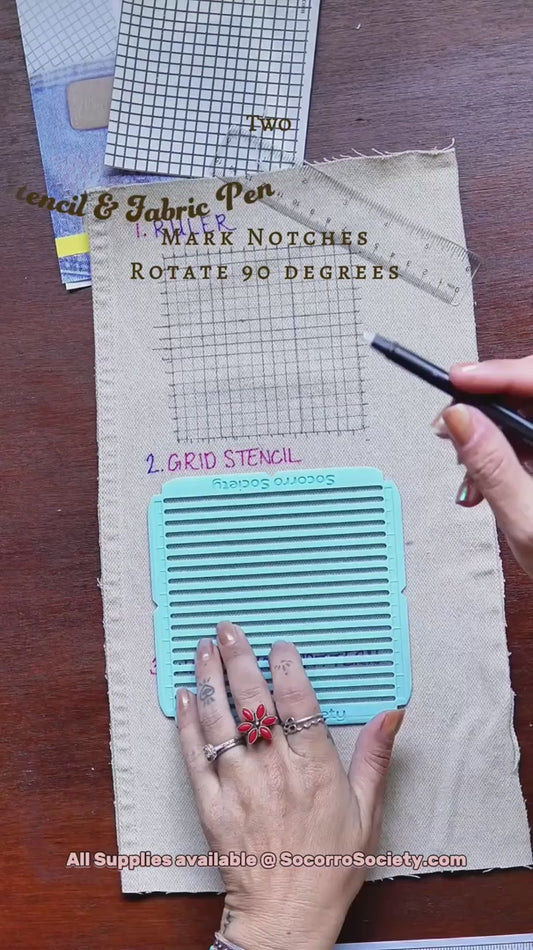 Two
tencil & Fabric Pen
1. RULER
Mark Notches
Rotate 90 degrees
2. GRID STENCIL
Socorro Society
3
All Supplies available @ SocorroSociety.com